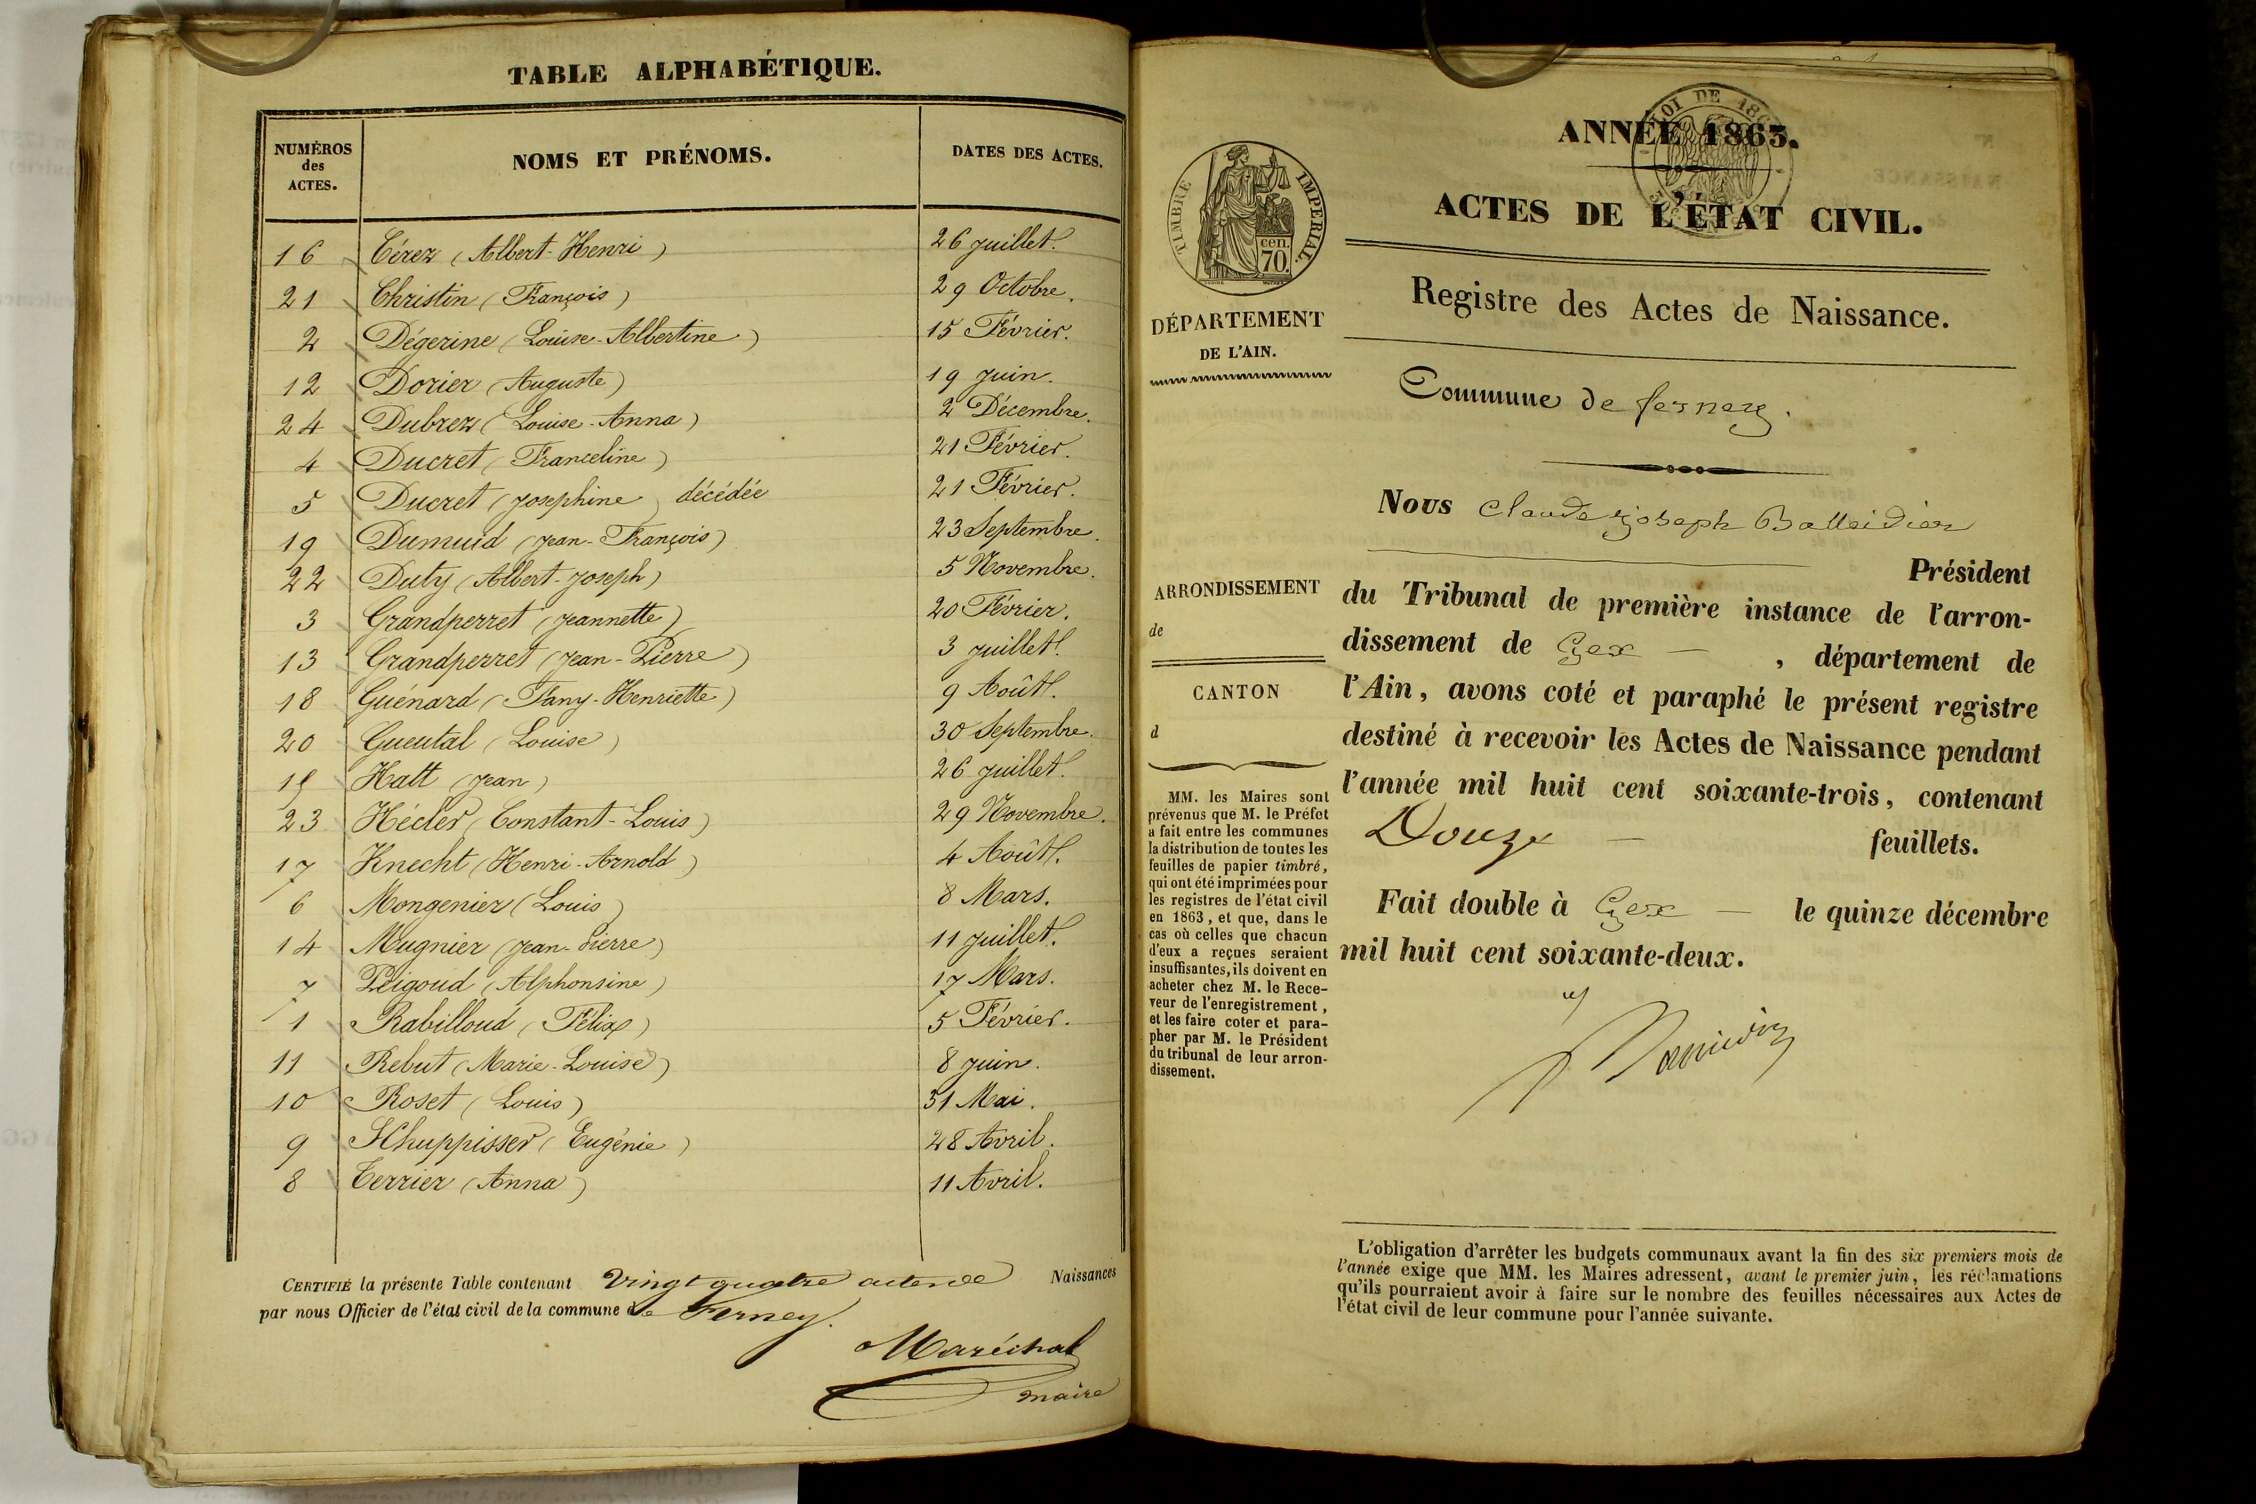 TABLE ALPHABÉTIQUE.
NUMÉROS des ACTES. NOMS ET PRÉNOMS. DATES DES ACTES.
16 Cérez (Albert-Henri) 26 juillet.
21 Christin (François) 29 Octobre.
2 Dégerine (Louise-Albertine) 15 Février.
12 Dorier (Auguste) 19 juin.
24 Dubrez (Louise-Anna) 2 Décembre.
4 Ducret (Franceline) 21 Février.
5 Ducret (Josephine) décédée 21 Février.
19 Dumuid (Jean-François) 23 Septembre.
22 Duty (Albert-Joseph) 5 Novembre.
3 Grandperret (Jeannette) 20 Février.
13 Grandperret (Jean-Pierre) 3 juillet.
18 Guénard (Fany-Henriette) 9 Août.
20 Gueutal (Louise) 30 Septembre.
15 Hatt (Jean) 26 juillet.
23 Hécler (Constant-Louis) 29 Novembre.
17 Knecht (Henri-Arnold) 4 Août.
6 Mongenier (Louis) 8 Mars.
14 Mugnier (Jean-Pierre) 11 juillet.
7 Peigoud (Alphonsine) 17 Mars.
1 Rabilloud (Félix) 5 Février.
11 Rebut (Marie-Louise) 8 juin.
10 Roset (Louis) 31 Mai.
9 SChuppisser (Eugénie) 28 Avril.
8 Terrier (Anna) 11 Avril.
CERTIFIÉ la présente Table contenant Vingt quatre actes de Naissances
par nous Officier de l'état civil de la commune de Ferney.
Maréchal
maire
LOI DE
ANNÉE 1863.
ACTES DE L'ÉTAT CIVIL.
Registre des Actes de Naissance.
TIMBRE IMPERIAL.
cen.
70.
DÉPARTEMENT
DE L'AIN.
Commune de ferney.
ARRONDISSEMENT
de
CANTON
d
MM. les Maires sont
prévenus que M. le Préfet
a fait entre les communes
la distribution de toutes les
feuilles de papier timbré,
qui ont été imprimées pour
les registres de l'état civil
en 1863, et que, dans le
cas où celles que chacun
d'eux a reçues seraient
insuffisantes, ils doivent en
acheter chez M. le Rece-
veur de l'enregistrement,
et les faire coter et para-
pher par M. le Président
du tribunal de leur arron-
dissement.
Nous Claude Joseph Balleidier
Président
du Tribunal de première instance de l'arron-
dissement de Gex — , département de
l'Ain, avons coté et paraphé le présent registre
destiné à recevoir les Actes de Naissance pendant
l'année mil huit cent soixante-trois, contenant
Douze — feuillets.
Fait double à Gex — le quinze décembre
mil huit cent soixante-deux.
L'obligation d'arrêter les budgets communaux avant la fin des six premiers mois de
l'année exige que MM. les Maires adressent, avant le premier juin, les réclamations
qu'ils pourraient avoir à faire sur le nombre des feuilles nécessaires aux Actes de
l'état civil de leur commune pour l'année suivante.